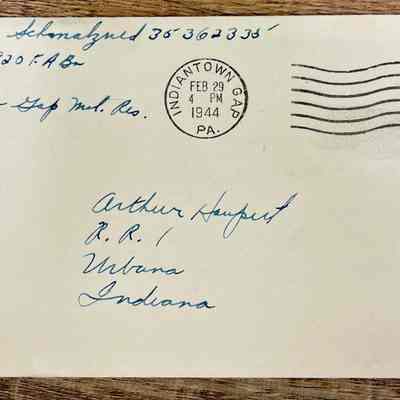 Schmalzried 35362335
920 F.A Bn
Gap Mil. Res.
INDIANTOWN GAP
FEB 29
4 PM
1944
PA.
Arthur Haupert
R.R. 1
Urbana
Indiana